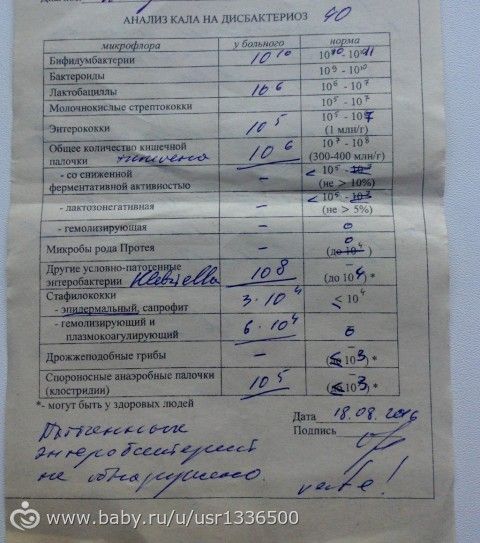 АНАЛИЗ КАЛА НА ДИСБАКТЕРИОЗ 40
микрофлора у больного норма
Бифидумбактерии 10^10 10^10 - 10^11
Бактероиды 10^9 - 10^10
Лактобациллы 10^6 10^6 - 10^7
Молочнокислые стрептококки 10^5 - 10^7
Энтерококки 10^5 10^5 - 10^7
(1 млн/г)
Общее количество кишечной 10^7 - 10^8
палочки типичная 10^6 (300-400 млн/г)
- со сниженной < 10^5 - 10^3
ферментативной активностью – (не > 10%)
< 10^5 - 10^3
- лактозонегативная – (не > 5%)
- гемолизирующая – 0
Микробы рода Протея – 0 (до 10^4)
Другие условно-патогенные
энтеробактерии Klebsiella 10^8 (до 10^4) *
Стафилококки
- эпидермальный, сапрофит 3·10^4 ≤ 10^4
- гемолизирующий и
плазмокоагулирующий 6·10^4 0
Дрожжеподобные грибы – (≤ 10^3) *
Спороносные анаэробные палочки
(клостридии) 10^5 (≤ 10^3) *
*- могут быть у здоровых людей
Дата 18.08.2016
Подпись
Патогенных
энтеробактерий
не обнаружено.
www.baby.ru/u/usr1336500